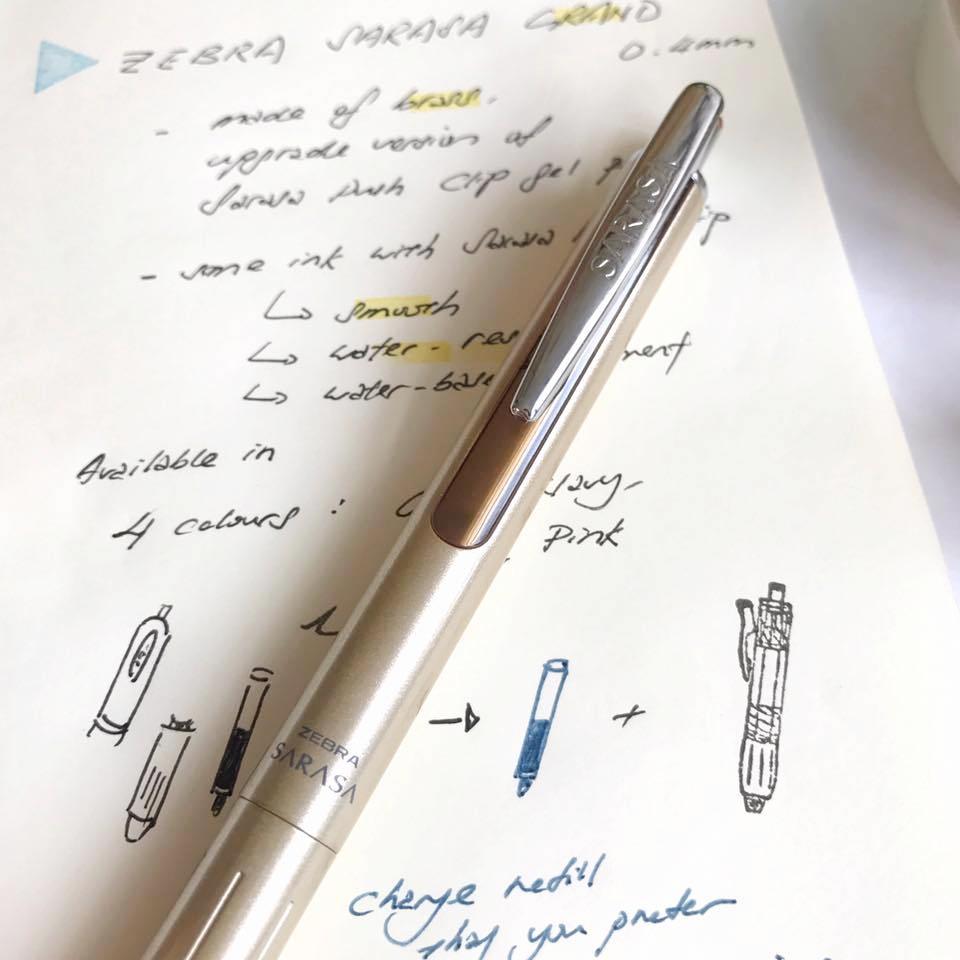 ZEBRA SARASA GRAND
0.4mm
- made of brass.
upgrade version of
Sarasa push clip gel
- same ink with Sarasa
↳ smooth
↳ water-
↳ water-base
Available in
4 colours :
Pink
SARASA
ZEBRA
SARASA
→
+
change refill
that you prefer